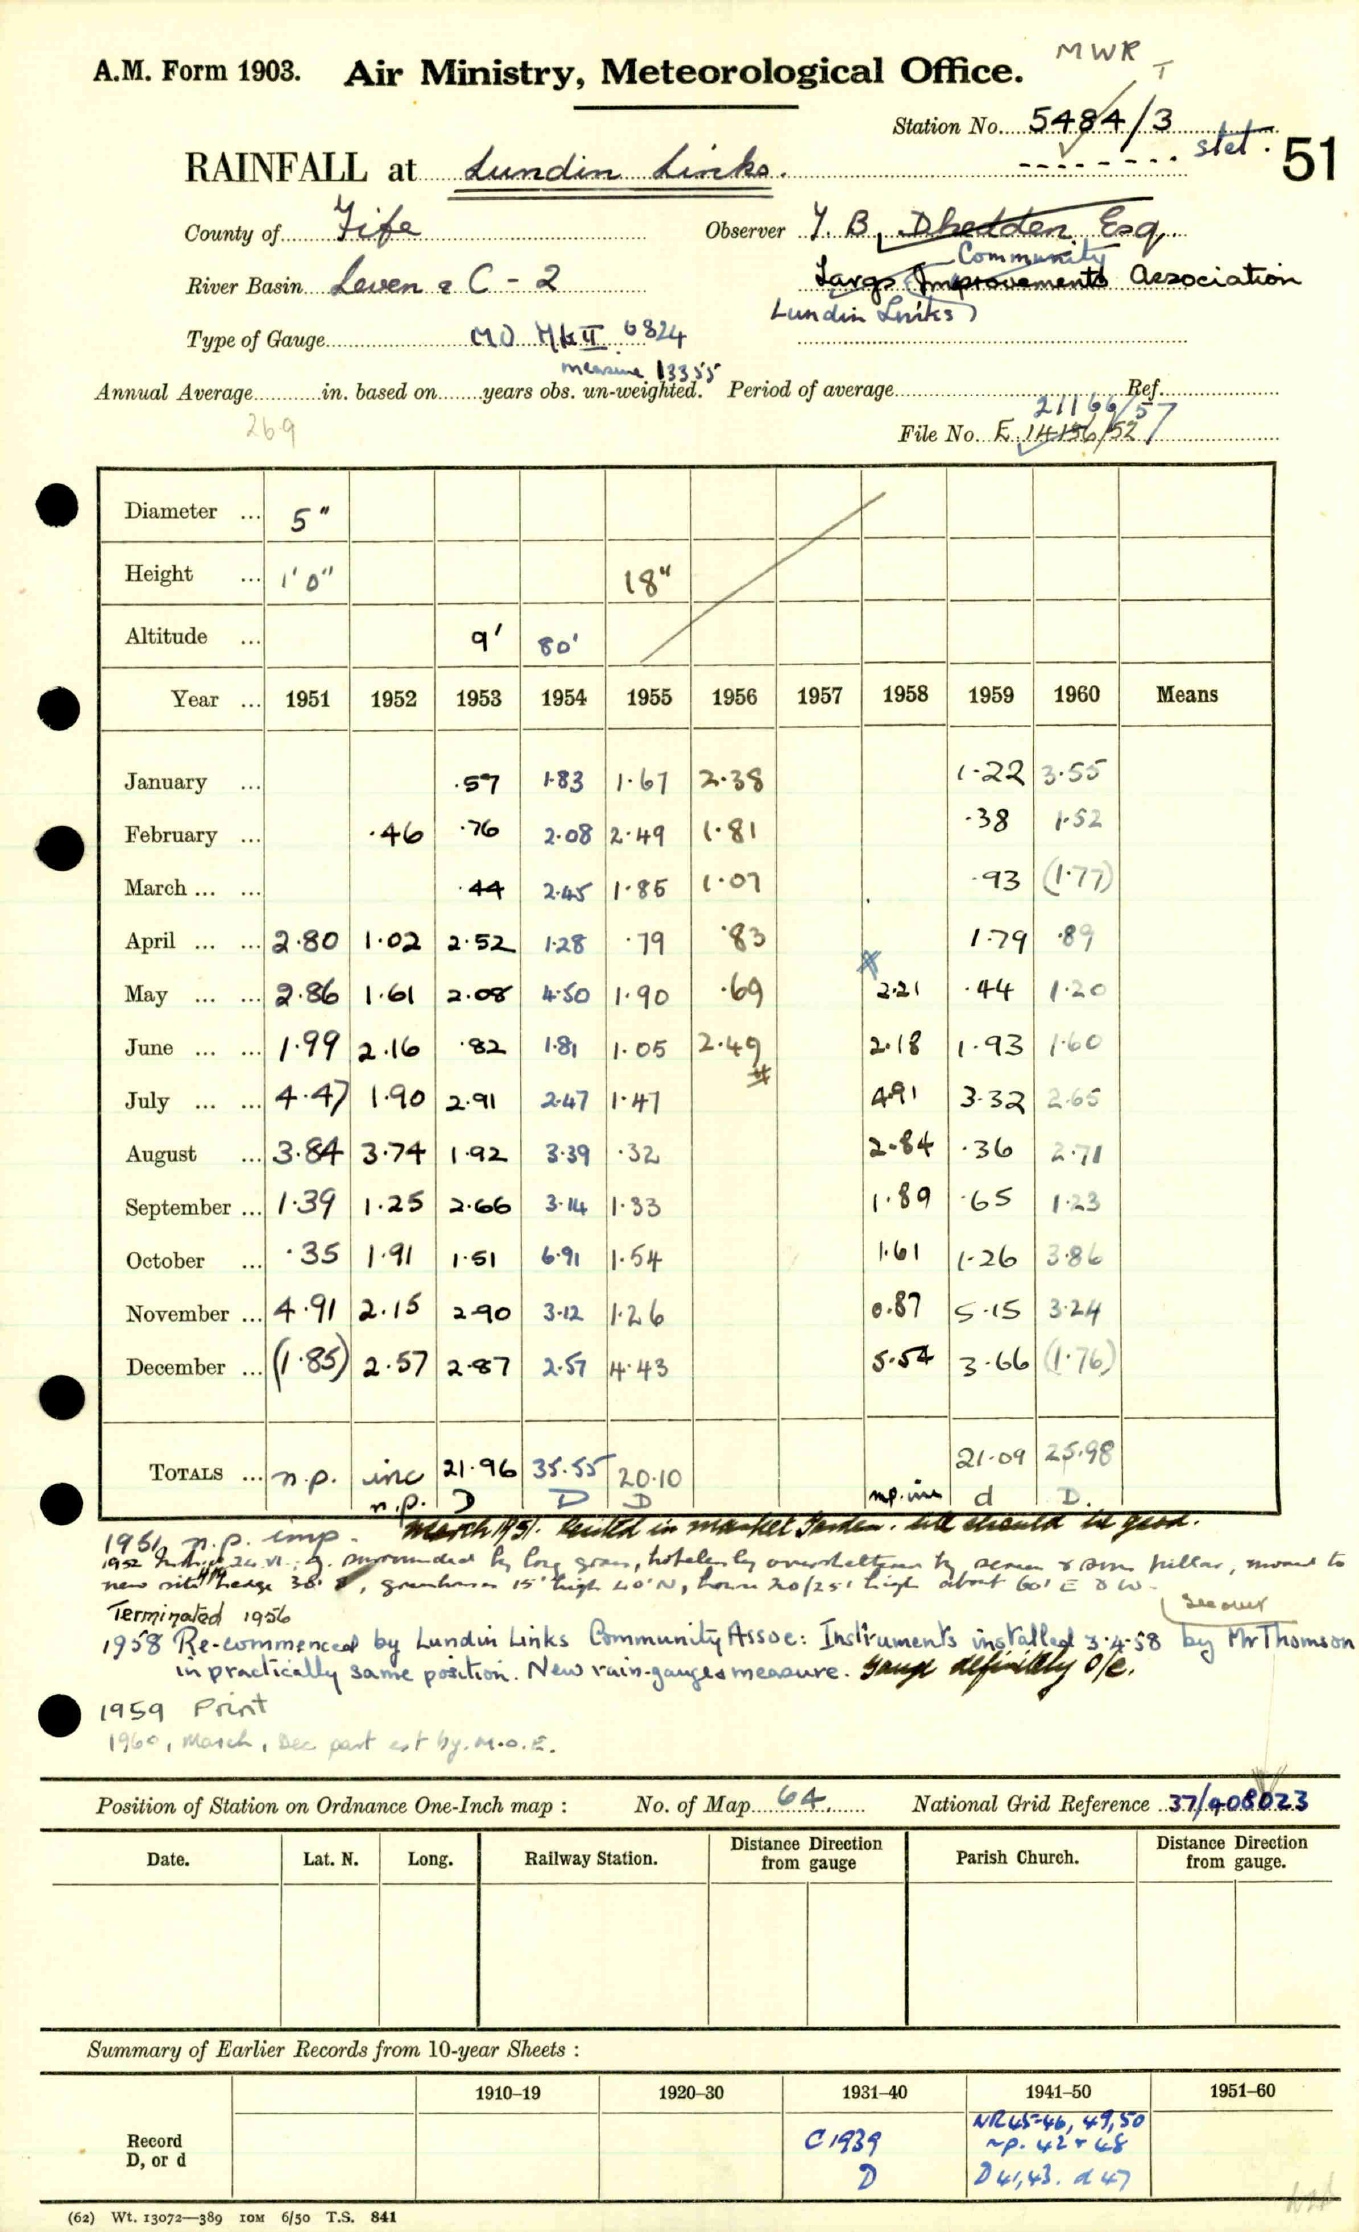 MWR
T
A.M. Form 1903. Air Ministry, Meteorological Office.
Station No. 5484/3 stet. 51
RAINFALL at Lundin Links.
County of Fife Observer T. B. Dhedden Esq
Community
River Basin Leven & C - 2 Largs Improvements Association
Lundin Links)
Type of Gauge MO Mk II 6824
measure 13355
Annual Average in. based on years obs. un-weighted. Period of average Ref.
26.9 21166/57
File No. E. 14156/52
Diameter ... 5"
Height ... 1' 0" 18"
Altitude ... 9' 80'
Year ... 1951 1952 1953 1954 1955 1956 1957 1958 1959 1960 Means
January ... .57 1.83 1.67 2.38 1.22 3.55
February ... .46 .76 2.08 2.49 1.81 .38 1.52
March ... ... .44 2.45 1.85 1.07 .93 (1.77)
April ... ... 2.80 1.02 2.52 1.28 .79 .83 1.79 .89
May ... ... 2.86 1.61 2.08 4.50 1.90 .69 2.21 .44 1.20
June ... ... 1.99 2.16 .82 1.81 1.05 2.49 2.18 1.93 1.60
July ... ... 4.47 1.90 2.91 2.47 1.47 4.91 3.32 2.65
August ... 3.84 3.74 1.92 3.39 .32 2.84 .36 2.71
September ... 1.39 1.25 2.66 3.14 1.33 1.89 .65 1.23
October ... .35 1.91 1.51 6.91 1.54 1.61 1.26 3.86
November ... 4.91 2.15 2.90 3.12 1.26 0.87 5.15 3.24
December ... (1.85) 2.57 2.87 2.57 4.43 5.54 3.66 (1.76)
TOTALS ... n.p. inc 21.96 35.55 20.10 21.09 25.98
n.p. D D D n.p. inc d D.
1951 n.p. imp. March 1951. Resited in market garden. Site should be good.
1952 surrounded by long grass, hopelessly oversheltered by screen & pillar, moved to
new site hedge 38' greenhouse 15' high 40' N, house 20/25' high about 60' E & W.
Terminated 1956 see over
1958 Re-commenced by Lundin Links Community Assoc: Instruments installed 3.4.58 by Mr Thomson
in practically same position. New rain-gauge & measure. Gauge definitely o/e.
1959 Print
1960, March, Dec part est by. M.O.E.
Position of Station on Ordnance One-Inch map : No. of Map 64 National Grid Reference 37/408023
Date. Lat. N. Long. Railway Station. Distance Direction from gauge Parish Church. Distance Direction from gauge.
Summary of Earlier Records from 10-year Sheets :
1910–19 1920–30 1931–40 1941–50 1951–60
Record
D, or d
C 1939
D
NR 45-46, 49, 50
n.p. 42 + 48
D 41, 43. d 47
(62) Wt. 13072—389 IOM 6/50 T.S. 841